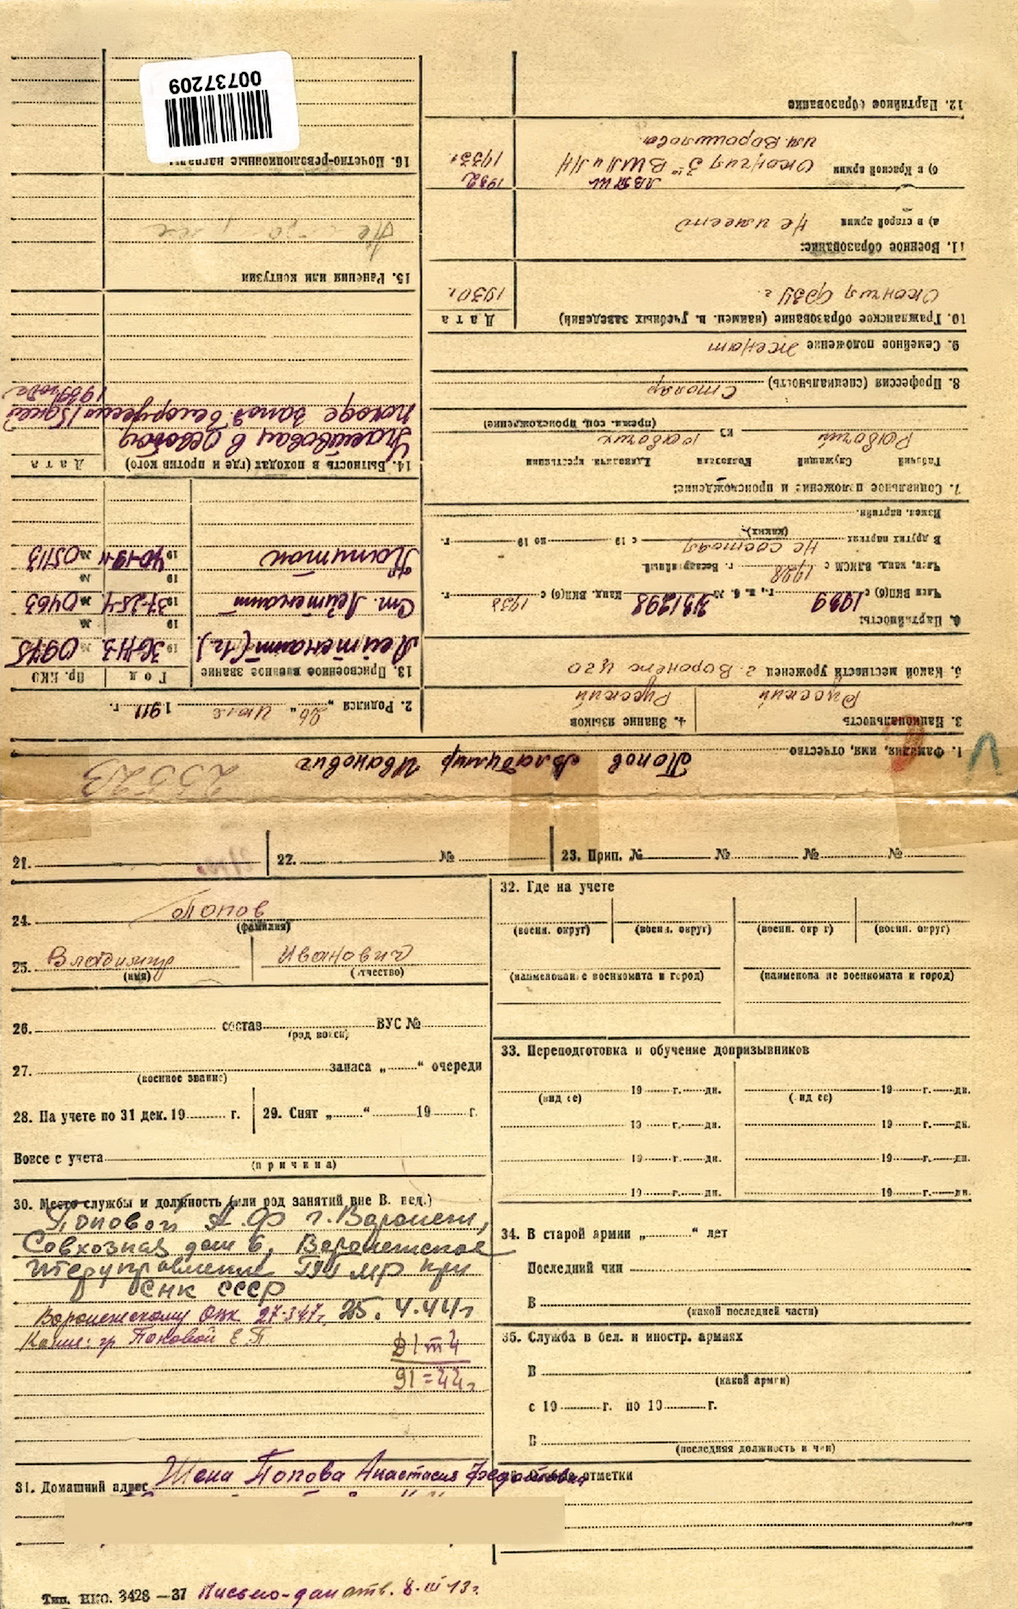 1. Фамилия, имя, отчество Попов Владимир Иванович
3. Национальность Русский
4. Знание языков Русский
2. Родился „26“ июля 1911 г.
5. Какой местности уроженец г. Воронеж ЦЧО
6. Партийность:
Член ВКП(б) с 1939 г., п. б. № 3131298 Канд. ВКП(б) с 1938 г.
Член, канд. ВЛКСМ с 1928 г. Беспартийный
В других партиях не состоял с 19 по 19 г.
(каких)
Измен. партийн.
7. Социальное положение и происхождение:
Рабочий Служащий Колхозник Единоличн. крестьянин
Рабочий из рабочих
(прежн. соц. происхождение)
8. Профессия (специальность) Столяр
9. Семейное положение женат
10. Гражданское образование (наимен. в. учебных заведений) Дата
Окончил ФЗУ 1930 г.
11. Военное образование:
а) в старой армии Не имеет
б) в Красной армии
Окончил 3ю ВШЛ и ЛН 1933 г.
им. Ворошилова
1932
12. Партийное образование
13. Присвоенное военное звание Год Пр. НКО
Лейтенант 19 36 № 0975
19 №
Ст. Лейтенант 19 37 № 0463
19 №
Капитан 19 40 № 05113
14. Бытность в походах (где и против кого) Дата
Участвовал в
походе запад Белоруссию 1939 года
15. Ранения или контузии
16. Почетно-революционные награды
00737209
23523
21. 22. № 23. Прип. № № № №
24. Попов
(фамилия)
25. Владимир Иванович
(имя) (отчество)
26. состав ВУС №
(род войск)
27. запаса „ “ очереди
(военное звание)
28. На учете по 31 дек. 19 г. 29. Снят „ “ 19 г.
Вовсе с учета
(причина)
30. Место службы и должность (или род занятий вне В. вед.)
Поповой А. Ф г. Воронеж,
Совхозная дом 6, Воронежское
при
СНК СССР
Воронежскому ОВК 27.3.47г. 25. 4. 44г
Копия: гр Поповой Е П
91=44г
31. Домашний адрес Жена Попова Анастасия Федотовна
32. Где на учете
(воен. округ) (воен. округ) (воен. округ) (воен. округ)
(наименование военкомата и город) (наименование военкомата и город)
33. Переподготовка и обучение допризывников
19 г. дн. 19 г. дн.
(вид ее) (вид ее)
19 г. дн. 19 г. дн.
19 г. дн. 19 г. дн.
19 г. дн. 19 г. дн.
34. В старой армии „ “ лет
Последний чин
В
(какой последней части)
35. Служба в бел. и иностр. армиях
В
(какой армии)
с 19 г. по 19 г.
В
(последняя должность и чин)
отметки
Тип. НКО. 3428 — 37 Письмо-дан отв. 8.III 43г.